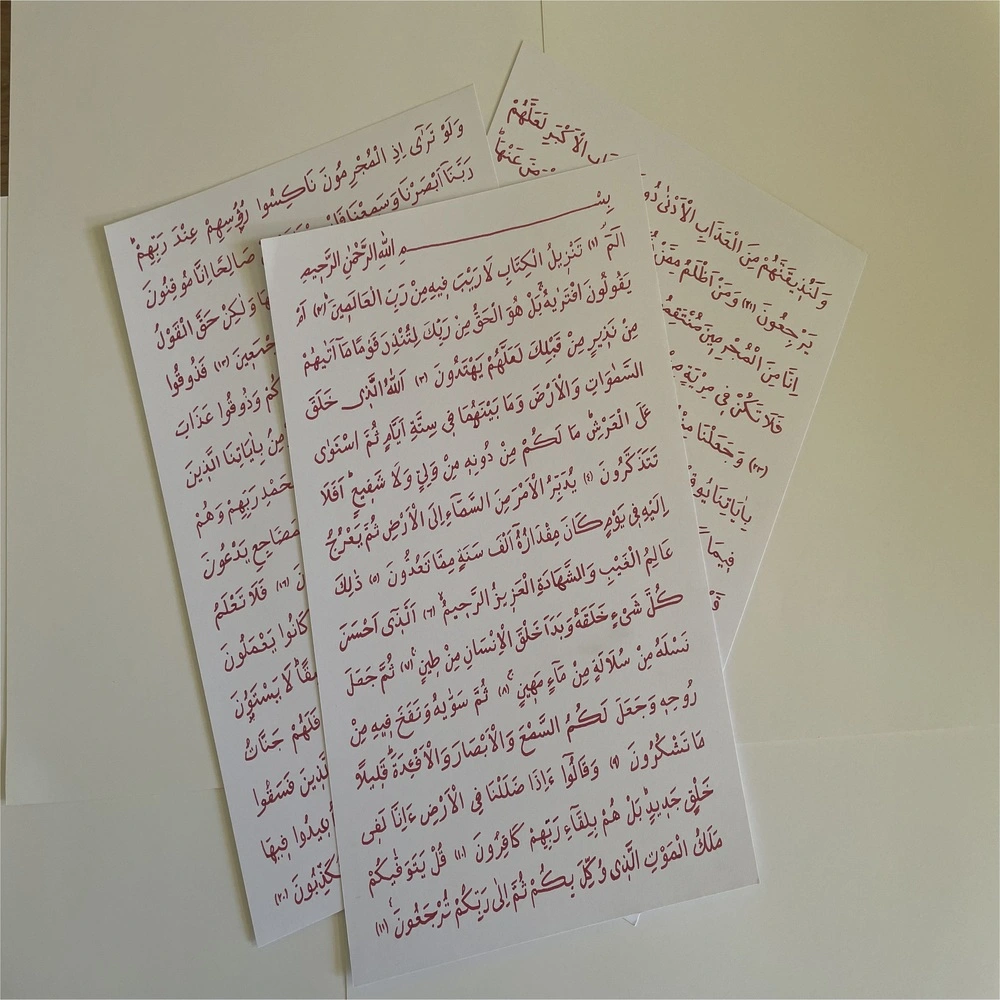 بِسْمِ اللهِ الرَّحْمٰنِ الرَّحِيمِ
الٓمٓ (١) تَنْزِيلُ الْكِتَابِ لَا رَيْبَ فِيهِ مِنْ رَبِّ الْعَالَمِينَ (٢) اَمْ
يَقُولُونَ افْتَرٰيهُ بَلْ هُوَ الْحَقُّ مِنْ رَبِّكَ لِتُنْذِرَ قَوْمًا مَٓا اَتٰيهُمْ
مِنْ نَذِيرٍ مِنْ قَبْلِكَ لَعَلَّهُمْ يَهْتَدُونَ (٣) اَللهُ الَّذِى خَلَقَ
السَّمٰوَاتِ وَالْاَرْضَ وَمَا بَيْنَهُمَا فِى سِتَّةِ اَيَّامٍ ثُمَّ اسْتَوٰى
عَلَى الْعَرْشِ مَا لَكُمْ مِنْ دُونِهِ مِنْ وَلِيٍّ وَلَا شَفِيعٍ اَفَلَا
تَتَذَكَّرُونَ (٤) يُدَبِّرُ الْاَمْرَ مِنَ السَّمَٓاءِ اِلَى الْاَرْضِ ثُمَّ يَعْرُجُ
اِلَيْهِ فِى يَوْمٍ كَانَ مِقْدَارُهُٓ اَلْفَ سَنَةٍ مِمَّا تَعُدُّونَ (٥) ذٰلِكَ
عَالِمُ الْغَيْبِ وَالشَّهَادَةِ الْعَزِيزُ الرَّحِيمُ (٦) اَلَّذِى اَحْسَنَ
كُلَّ شَىْءٍ خَلَقَهُ وَبَدَاَ خَلْقَ الْاِنْسَانِ مِنْ طِينٍ (٧) ثُمَّ جَعَلَ
نَسْلَهُ مِنْ سُلَالَةٍ مِنْ مَٓاءٍ مَهِينٍ (٨) ثُمَّ سَوّٰيهُ وَنَفَخَ فِيهِ مِنْ
رُوحِهِ وَجَعَلَ لَكُمُ السَّمْعَ وَالْاَبْصَارَ وَالْاَفْئِدَةَ قَلِيلًا
مَا تَشْكُرُونَ (٩) وَقَالُٓوا ءَاِذَا ضَلَلْنَا فِى الْاَرْضِ ءَاِنَّا لَفِى
خَلْقٍ جَدِيدٍ بَلْ هُمْ بِلِقَٓاءِ رَبِّهِمْ كَافِرُونَ (١٠) قُلْ يَتَوَفّٰيكُمْ
مَلَكُ الْمَوْتِ الَّذِى وُكِّلَ بِكُمْ ثُمَّ اِلٰى رَبِّكُمْ تُرْجَعُونَ (١١)
وَلَوْ تَرٰٓى اِذِ الْمُجْرِمُونَ نَاكِسُوا رُؤُسِهِمْ عِنْدَ رَبِّهِمْ
رَبَّنَٓا اَبْصَرْنَا وَسَمِعْنَا صَالِحًا اِنَّا مُوقِنُونَ
وَلٰكِنْ حَقَّ الْقَوْلُ
(١٣) فَذُوقُوا
وَذُوقُوا عَذَابَ
بِاٰيَاتِنَا الَّذِينَ
رَبِّهِمْ وَهُمْ
يَدْعُونَ
(١٦) فَلَا تَعْلَمُ
كَانُوا يَعْمَلُونَ
لَا يَسْتَوُونَ
فَلَهُمْ جَنَّاتُ
فَسَقُوا
اُعِيدُوا فِيهَا
تُكَذِّبُونَ (٢٠)
وَلَنُذِيقَنَّهُمْ مِنَ الْعَذَابِ الْاَدْنٰى الْاَكْبَرِ لَعَلَّهُمْ
يَرْجِعُونَ (٢١) وَمَنْ اَظْلَمُ مِمَّنْ عَنْهَا
اِنَّا مِنَ الْمُجْرِمِينَ
فَلَا تَكُنْ فِى مِرْيَةٍ
(٢٣) وَجَعَلْنَا
بِاٰيَاتِنَا
فِيمَا